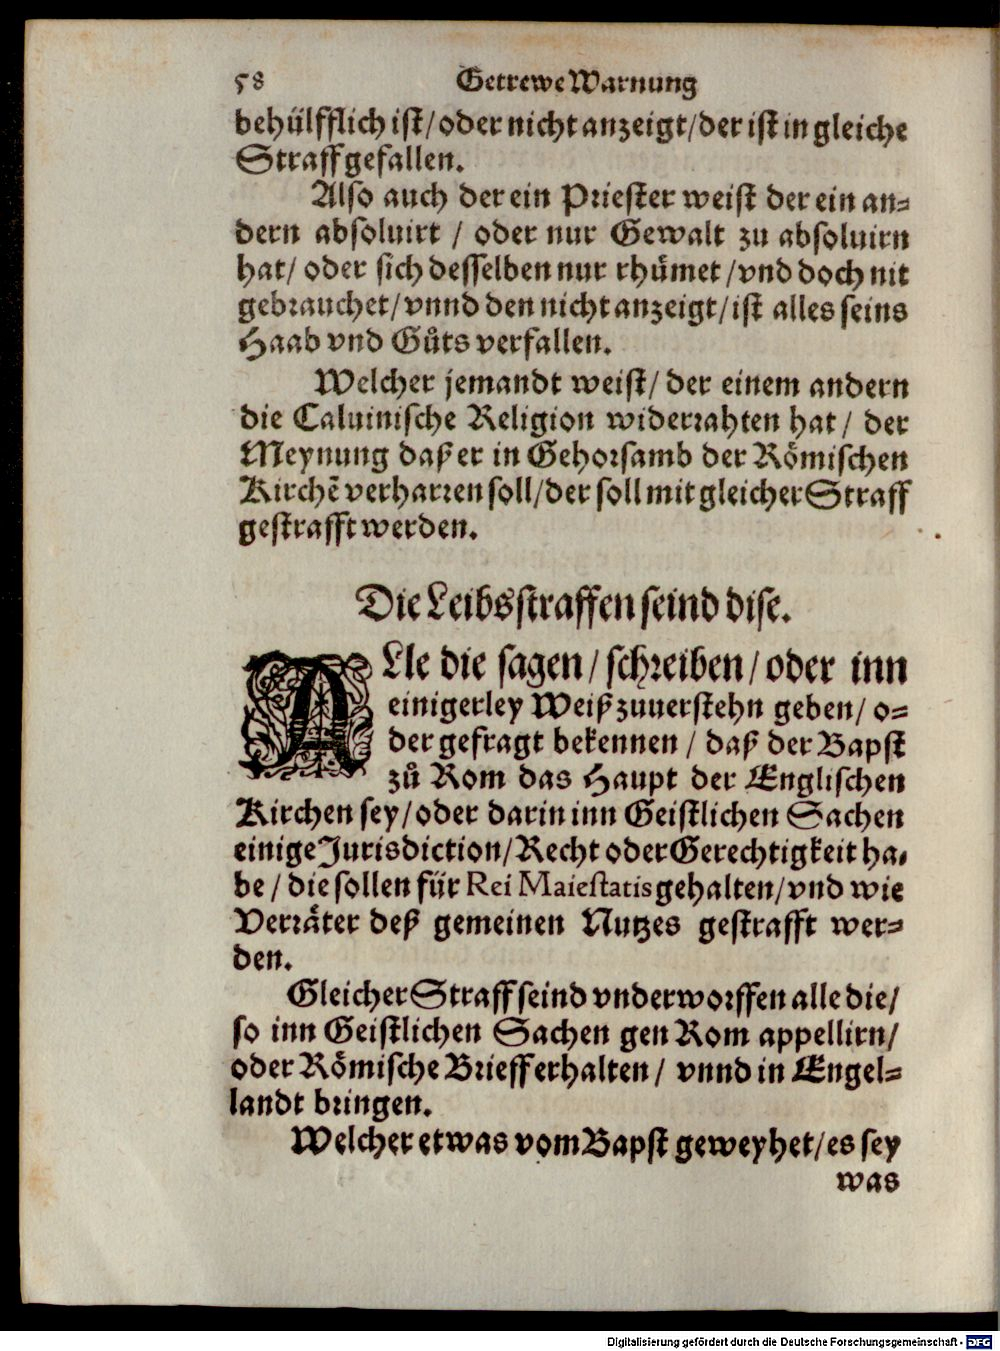 58 Getrewe Warnung
behülfflich ist/ oder nicht anzeigt/ der ist in gleiche
Straff gefallen.
Also auch der ein Priester weist der ein an-
dern absoluirt / oder nur Gewalt zu absoluirn
hat/ oder sich desselben nur rhümet /vnd doch nit
gebrauchet/ vnnd den nicht anzeigt/ ist alles seins
Haab vnd Gůts verfallen.
Welcher jemandt weist/ der einem andern
die Caluinische Religion widerrahten hat / der
Meynung daß er in Gehorsamb der Römischen
Kirchẽ verharren soll/ der soll mit gleicher Straff
gestrafft werden.
Die Leibsstraffen seind dise.
ALle die sagen / schreiben / oder inn
einigerley Weiß zuuerstehn geben/ o-
der gefragt bekennen / daß der Bapst
zů Rom das Haupt der Englischen
Kirchen sey/ oder darin inn Geistlichen Sachen
einige Jurisdiction/ Recht oder Gerechtigkeit ha-
be / die sollen für Rei Maiestatis gehalten/ vnd wie
Verräter deß gemeinen Nutzes gestrafft wer-
den.
Gleicher Straff seind vnderworffen alle die/
so inn Geistlichen Sachen gen Rom appellirn/
oder Römische Brieff erhalten / vnnd in Engel-
landt bringen.
Welcher etwas vom Bapst geweyhet/ es sey
was
Digitalisierung gefördert durch die Deutsche Forschungsgemeinschaft - DFG